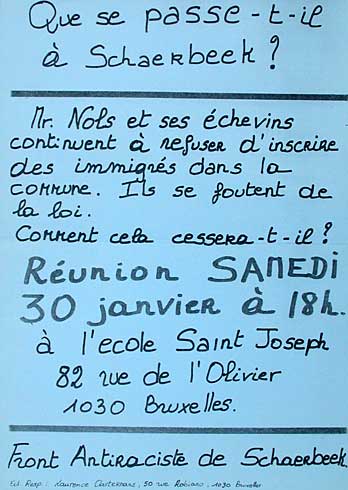 Que se passe-t-il
à Schaerbeek ?
Mr. Nols et ses échevins
continuent à refuser d'inscrire
des immigrés dans la
commune. Ils se foutent de
la loi.
Comment cela cessera-t-il ?
Réunion SAMEDI
30 janvier à 18h.
à l'ecole Saint Joseph
82 rue de l'Olivier
1030 Bruxelles.
Front Antiraciste de Schaerbeek.
Ed. Resp : Laurence 50 rue Robiano, 1030 Bruxelles